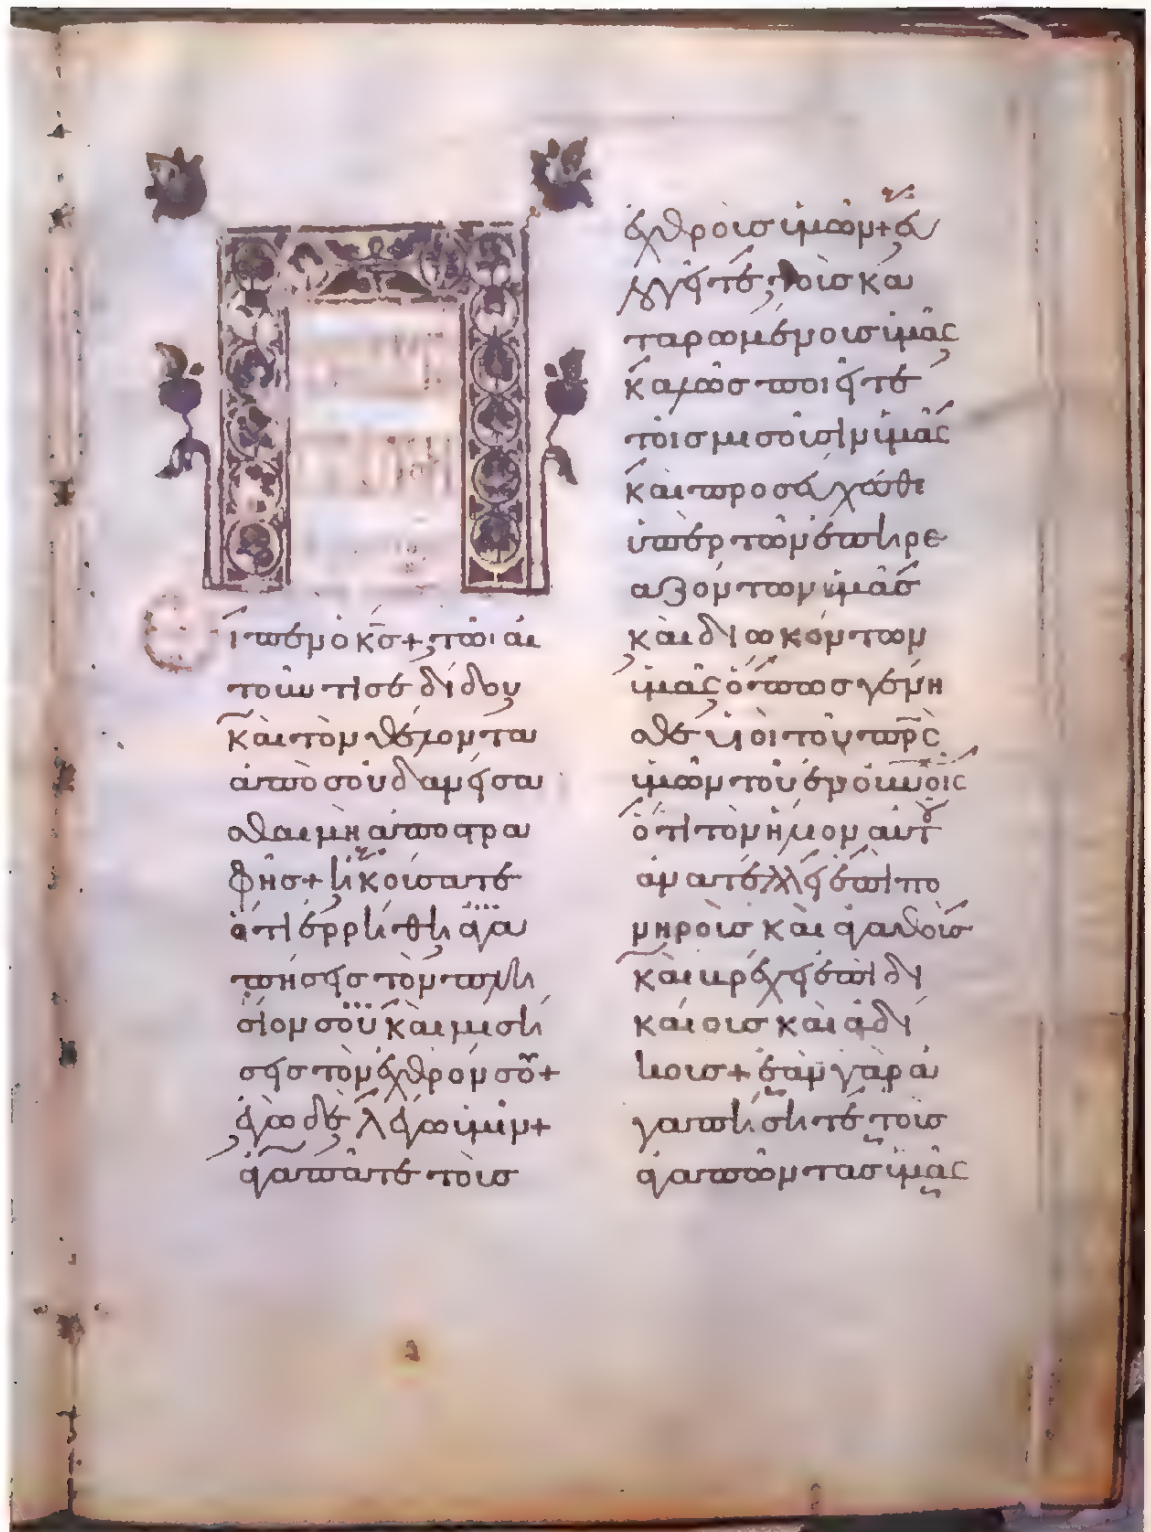 Εἶπεν ὁ κ̅ς̅ + τῶι αἰ
τοῦντί σε δίδου
καὶ τὸν θέλοντα
ἀπὸ σοῦ δανείσα
σθαι μὴ ἀποστρα
φῆς + ἠκούσατε
ὅτι ἐρρήθη ἀγα
πήσεις τὸν πλη
σίον σοῦ καὶ μισή
σεις τὸν ἐχθρόν σου +
ἐγὼ δὲ λέγω ὑμῖν +
ἀγαπᾶτε τοὺς
ἐχθροὺς ὑμῶν + εὐ
λογεῖτε τοὺς κα
ταρωμένους ὑμᾶς
καλῶς ποιεῖτε
τοῖς μισοῦσιν ὑμᾶς
καὶ προσεύχεσθε
ὑπὲρ τῶν ἐπηρε
αζόντων ὑμᾶς
καὶ διωκόντων
ὑμᾶς ὅπως γένη
σθε υἱοὶ τοῦ π̅ρ̅ς̅
ὑμῶν τοῦ ἐν οὐνοῖς
ὅτι τὸν ἥλιον αὐτοῦ
ἀνατέλλει ἐπὶ πο
νηροὺς καὶ ἀγαθοὺς
καὶ βρέχει ἐπὶ δι
καίους καὶ ἀδί
κους + ἐὰν γὰρ ἀ
γαπήσητε τοὺς
ἀγαπῶντας ὑμᾶς